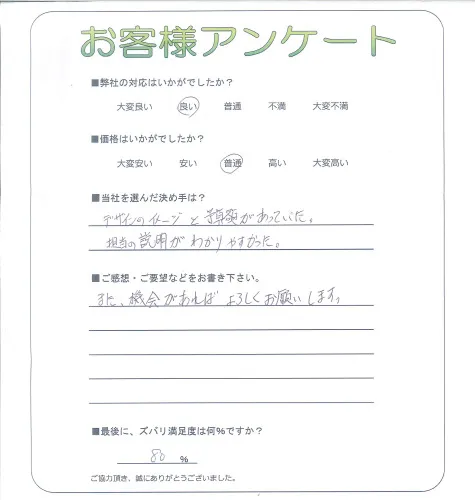 お客様アンケート
■弊社の対応はいかがでしたか？
大変良い 良い 普通 不満 大変不満
■価格はいかがでしたか？
大変安い 安い 普通 高い 大変高い
■当社を選んだ決め手は？
デザインのイメージと予算額があっていた。
担当の説明がわかりやすかった。
■ご感想・ご要望などをお書き下さい。
また、機会があればよろしくお願いします。
■最後に、ズバリ満足度は何％ですか？
80 %
ご協力頂き、誠にありがとうございました。